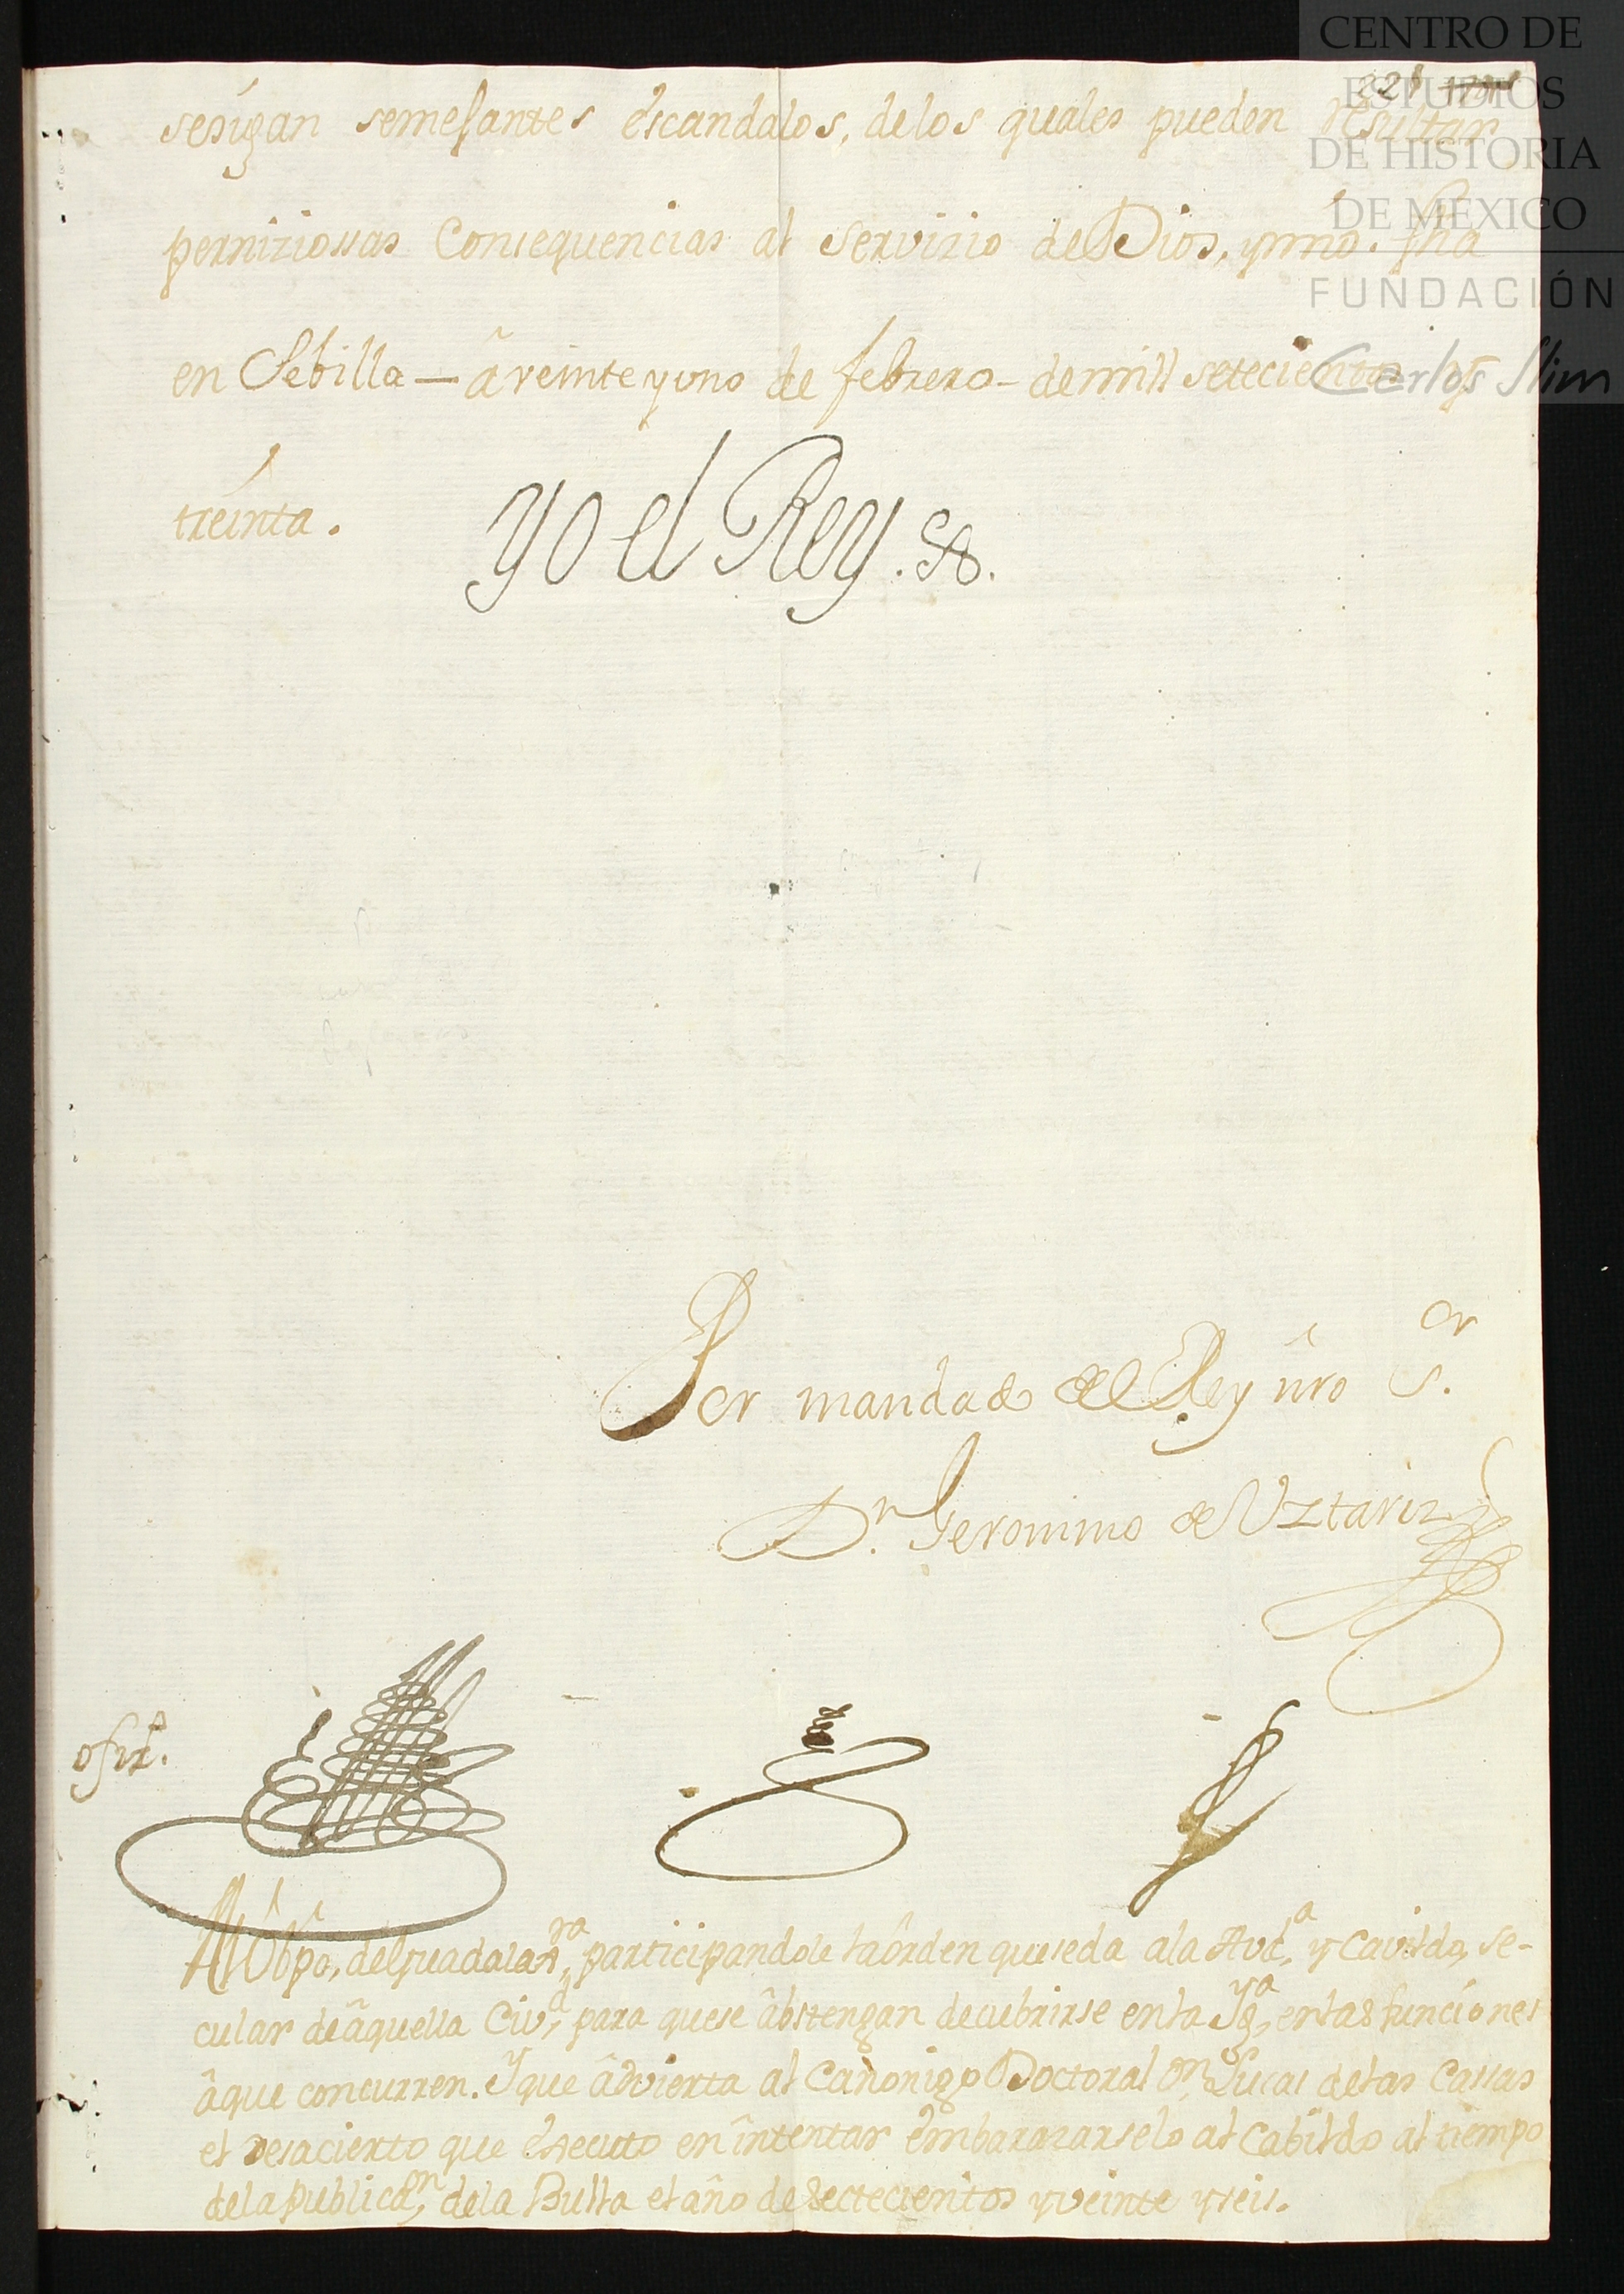 CENTRO DE
ESTUDIOS
DE HISTORIA
DE MÉXICO
FUNDACIÓN
Carlos Slim
228
sesígan semejantes éscandalos, delos quales pueden resultar
perniziossas Consequencias al servizio de Dios, ymío. fha
en Sebilla — â veinte y uno de febrero — demill setecientos y
treínta.
Yo el Rey.
Por mandado del Rey nro S.or
Dn. Geronimo de Uztariz
ofiz.
Al Obpo, de Guadalax.ra, participandole la órden que se da ala Aud.a, y Cavildo, se-
cular de âquella Civ.d, para quese âbstengan de cubrirse en la Yg.a, en las funciónes
âque concurren. Y que âdvierta al Canonigo Doctoral Dn. Lucas de las Cassas
el desacierto que éxecuto en intentar émbarazarselo al Cabildo al tiempo
dela publicaon, dela Bulla el año de sectecientos y veinte y seis.